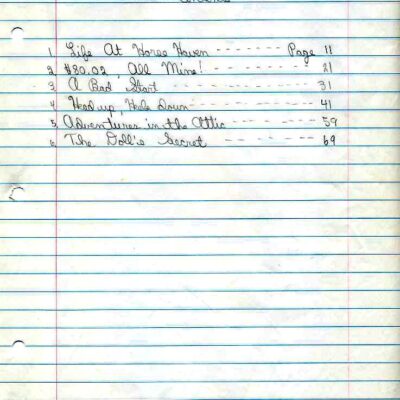 Contents
1. Life At Horse Haven -------- Page 11
2. $80.02, All Mine! -------- 21
3. A Bad Start -------- 31
4. Head up, Hele Down -------- 41
5. Adventures in the Attic -------- 59
6. The Doll's Secret -------- 69